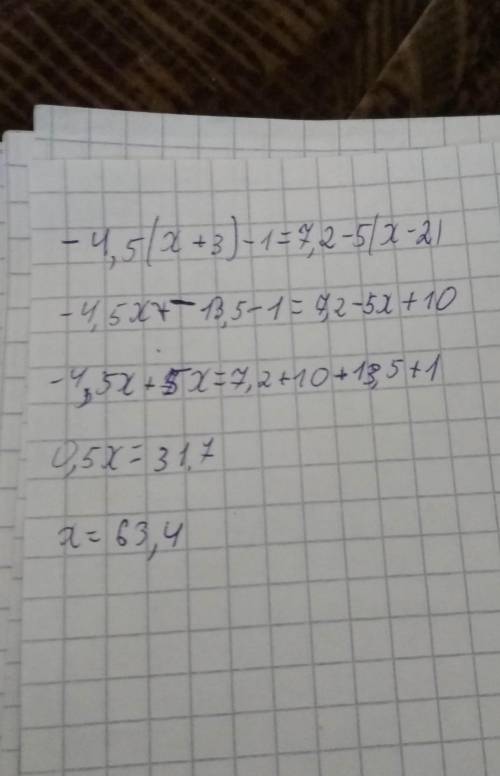 -4,5(x+3)-1=7,2-5(x-2)
-4,5x-13,5-1=7,2-5x+10
-4,5x+5x=7,2+10+13,5+1
0,5x=31,7
x=63,4